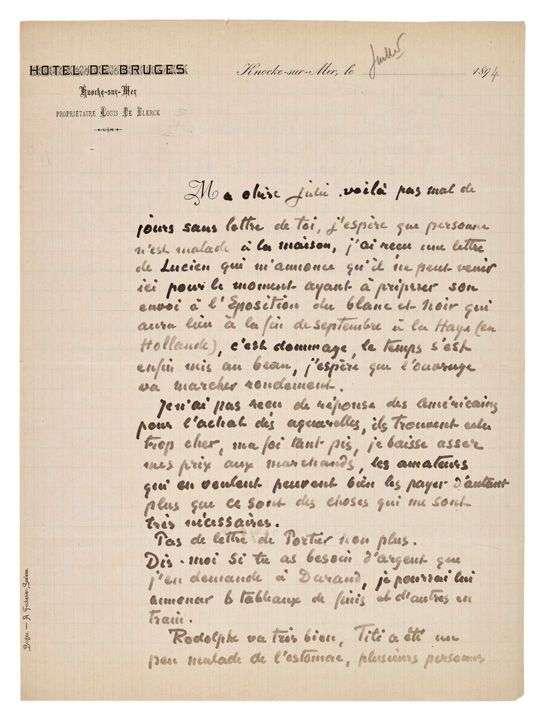 HOTEL DE BRUGES
Knocke-sur-Mer
PROPRIÉTAIRE LOUIS DE KLERCK
Knocke-sur-Mer, le Juillet 1894
Ma chère Julie voilà pas mal de
jours sans lettre de toi, j'espère que personne
n'est malade à la maison, j'ai reçu une lettre
de Lucien qui m'annonce qu'il ne peut venir
ici pour le moment ayant à préparer son
envoi à l'Eposition du blanc et noir qui
aura lieu à la fin de septembre à la Haye (en
Hollande), c'est dommage, le temps s'est
enfin mis au beau, j'espère que l'ouvrage
va marcher rondement.
Je n'ai pas reçu de réponse des américains
pour l'achat des aquarelles, ils trouvent cela
trop cher, ma foi tant pis, je baisse assez
mes prix aux marchands, les amateurs
qui en veulent peuvent bien les payer d'autant
plus que ce sont des choses qui me sont
très nécessaires.
Pas de lettre de Portier non plus.
Dis-moi si tu as besoin d'argent que
j'en demande à Durand, je pourrai lui
annoncer 6 tableaux de finis et d'autres en
train.
Rodolphe va très bien, Titi a été un
peu malade de l'estomac, plusieurs personnes